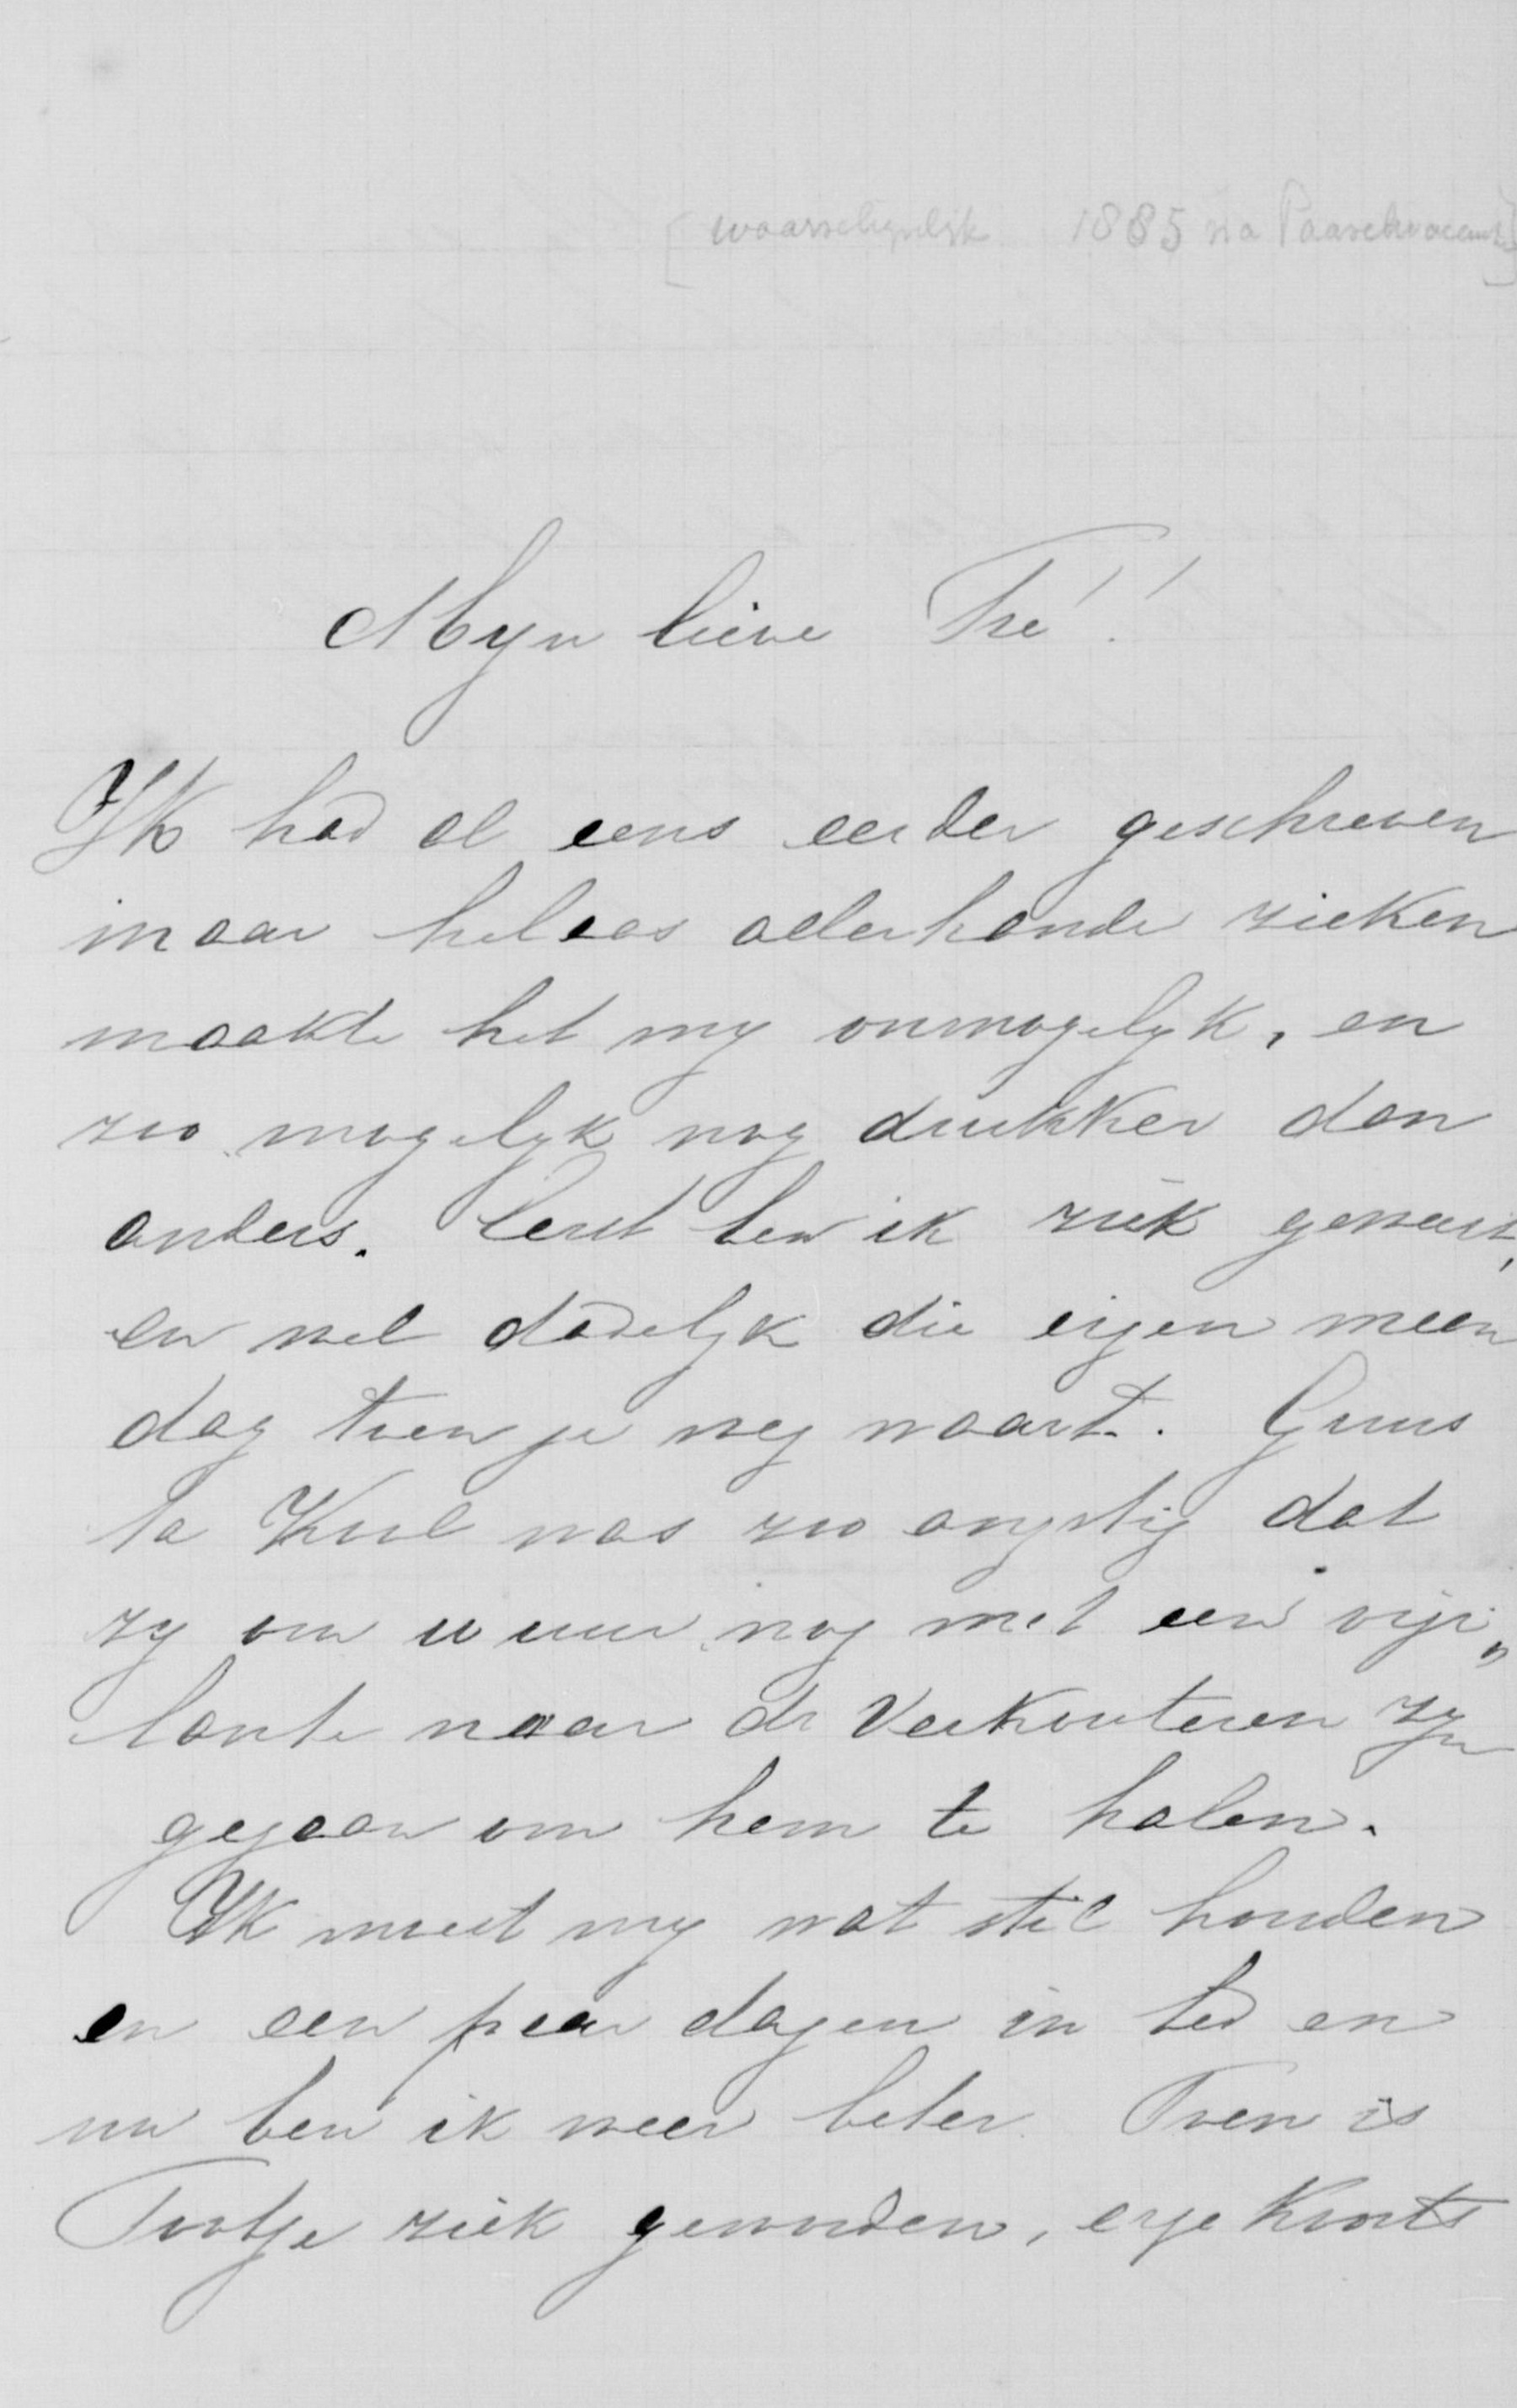 [waarschynlyk 1885 na Paaschvacantie]
Myn lieve Fré!!
Ik had al eens eerder geschreven
maar helaas allerhande zieken
maakte het my onmogelyk, en
zoo mogelyk nog drukker dan
anders. Eerst ben ik ziek geweest,
en wel dadelyk die eigen maan
dag toen je weg waart. Guus
ta Kuil was zoo angstig dat
zy om 11 uur nog met een vigi„
lante naar dr Verkouteren zyn
gegaan om hem te halen.
Ik moest my wat stil houden
en een paar dagen in bed en
nu ben ik weer beter. Toen is
Tootje ziek geworden, erge Koorts